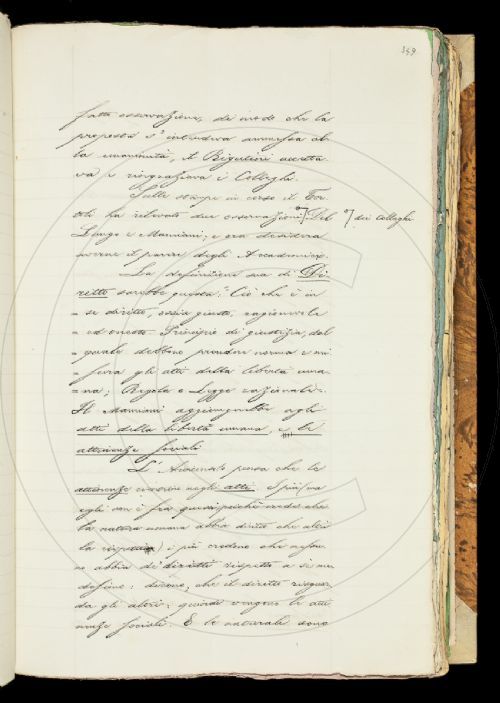 349
fatte osservazione, di modo che la
proposta s'intendeva ammessa al-
la unanimità, il Rigutini accetta-
va e ringraziava i Colleghi.
Sulle stampe in corso il Tor-
toli ha rilevato due osservazioni del dei Colleghi
Lungo e Mamiani; e ora desidera
sentire il parere degli Accademici.
La definizione sua di Di-
ritto sarebbe questa: "Ciò che è in
= se diritto, ossia giusto, ragionevole
= ed onesto. Principio di giustizia, dal
= quale debbono prendere norma e mi-
= sura gli atti della libertà uma-
= na; Regola e Legge razionale".
Il Mamiani aggiungerebbe agli
atti della libertà umana, e le
attinenze sociali
L'Arciconsolo pensa che le
attinenze entrino negli atti. I più
egli non è fra quei perchè crede che
la natura umana abbia diritto che altri
la rispetti) i più credono che nessu-
no abbia dei diritti rispetto a se me-
desimo: dicono, che il diritto riguar-
da gli altri: quindi vengono le atti-
nenze sociali. E le naturali sono